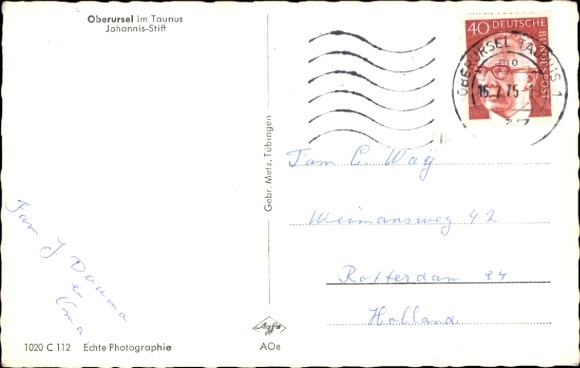 Oberursel im Taunus
Johannis-Stift
40 DEUTSCHE
BUNDESPOST
OBERURSEL (TAUNUS) 1
Gebr. Metz, Tübingen
Fam C. Waÿ
Weimansweg 42
Rotterdam 24
Holland
Fam J Douma
e
Oma
Agfa
1020 C 112 Echte Photographie
AOe